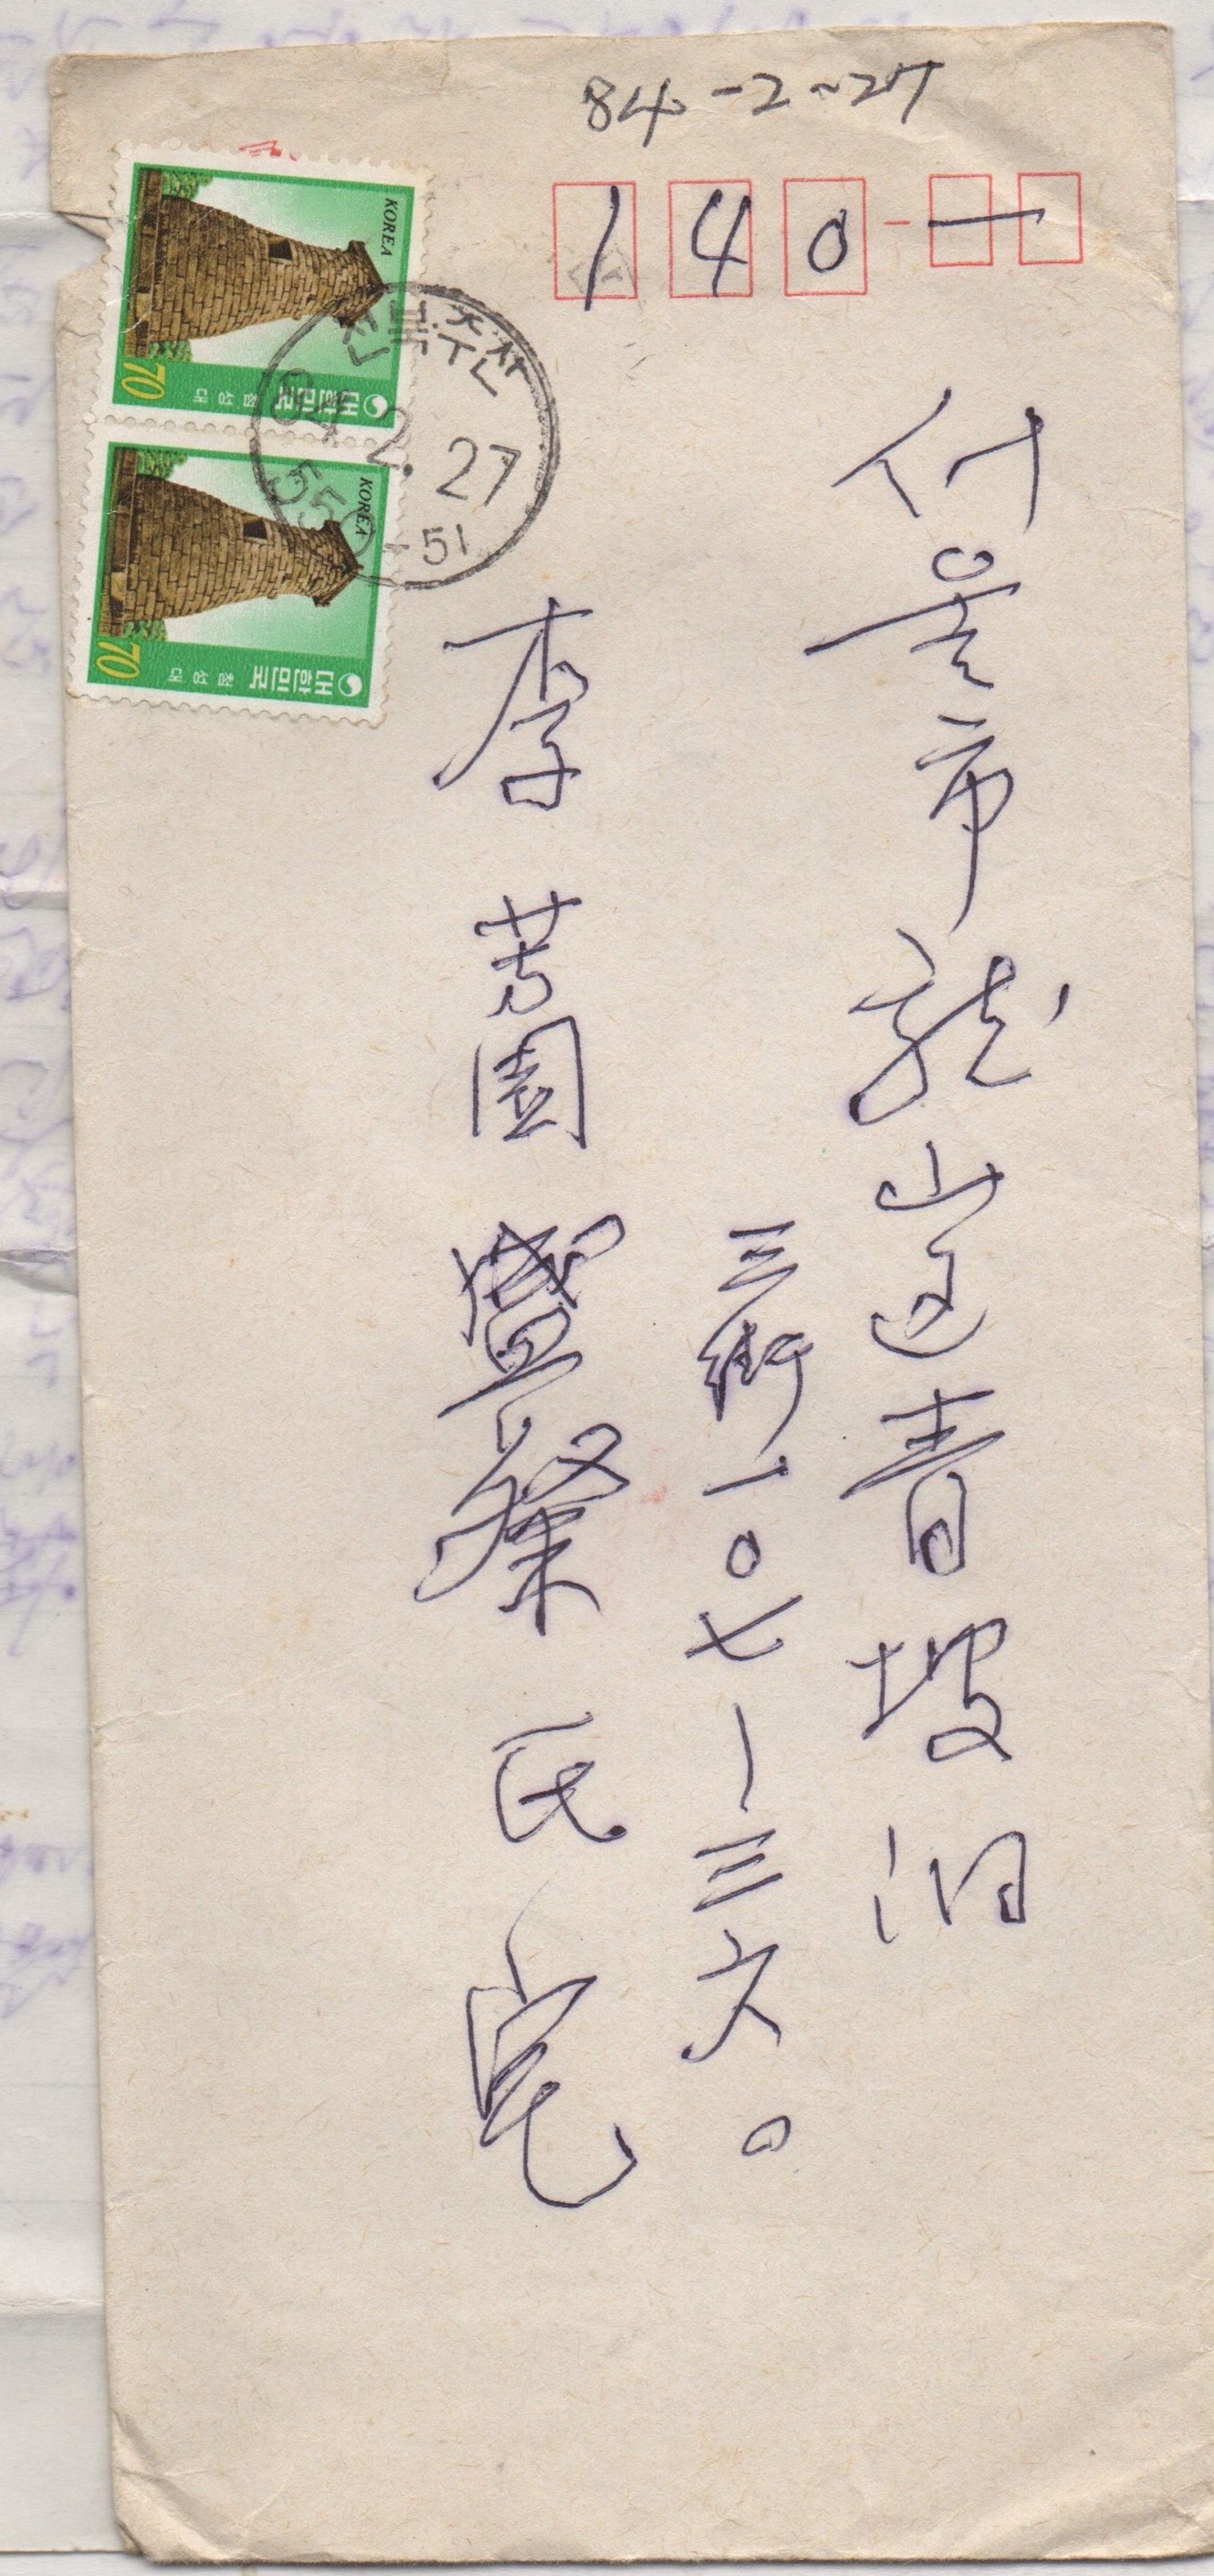 84-2-27
140-
서울市龍山区青坡洞
三街一〇七-三六〇
李芳園 盛粲氏宅
KOREA
70
대한민국 첨성대
KOREA
70
대한민국 첨성대
84.2.27
550-51